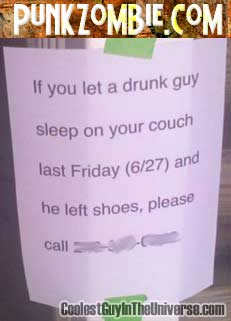 PUNKZOMBIE.COM
If you let a drunk guy
sleep on your couch
last Friday (6/27) and
he left shoes, please
call
CoolestGuyInTheUniverse.com